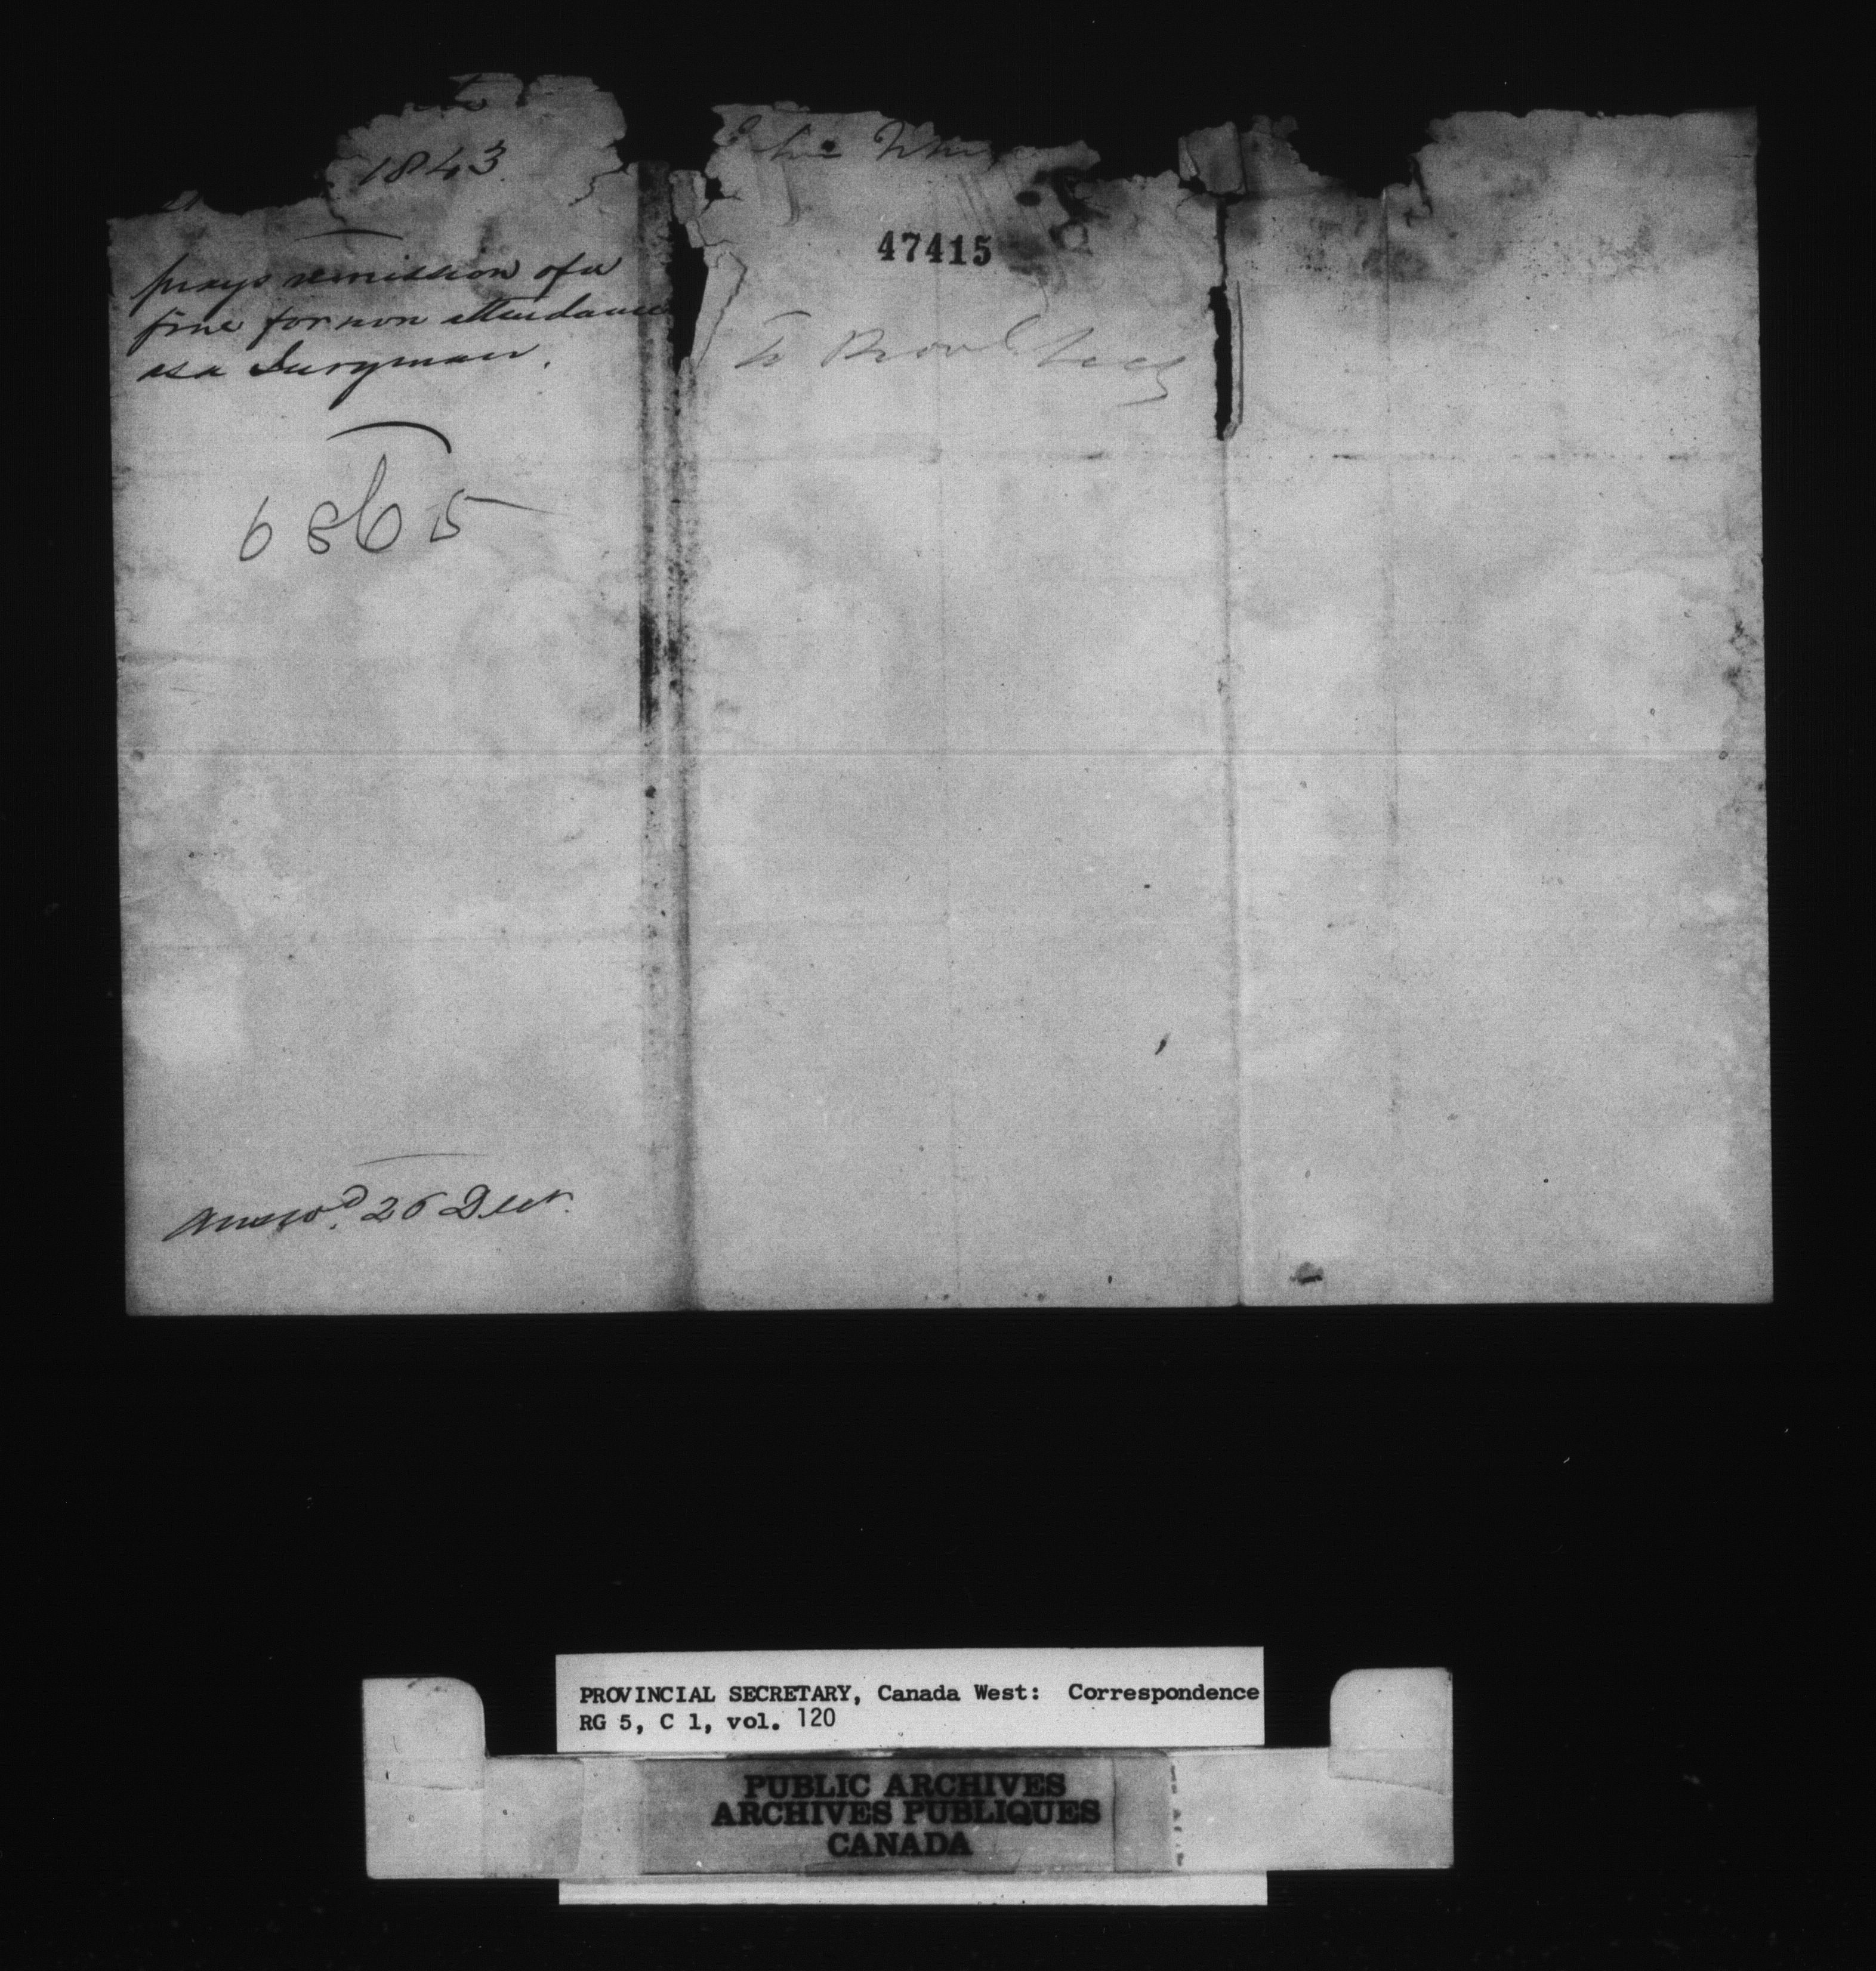 1843.
prays remission of a
fine for non attendance
as a Juryman.
6865
Answd. 26 Decr.
47415
To Provl Secy
PROVINCIAL SECRETARY, Canada West: Correspondence
RG 5, C 1, vol. 120
PUBLIC ARCHIVES
ARCHIVES PUBLIQUES
CANADA